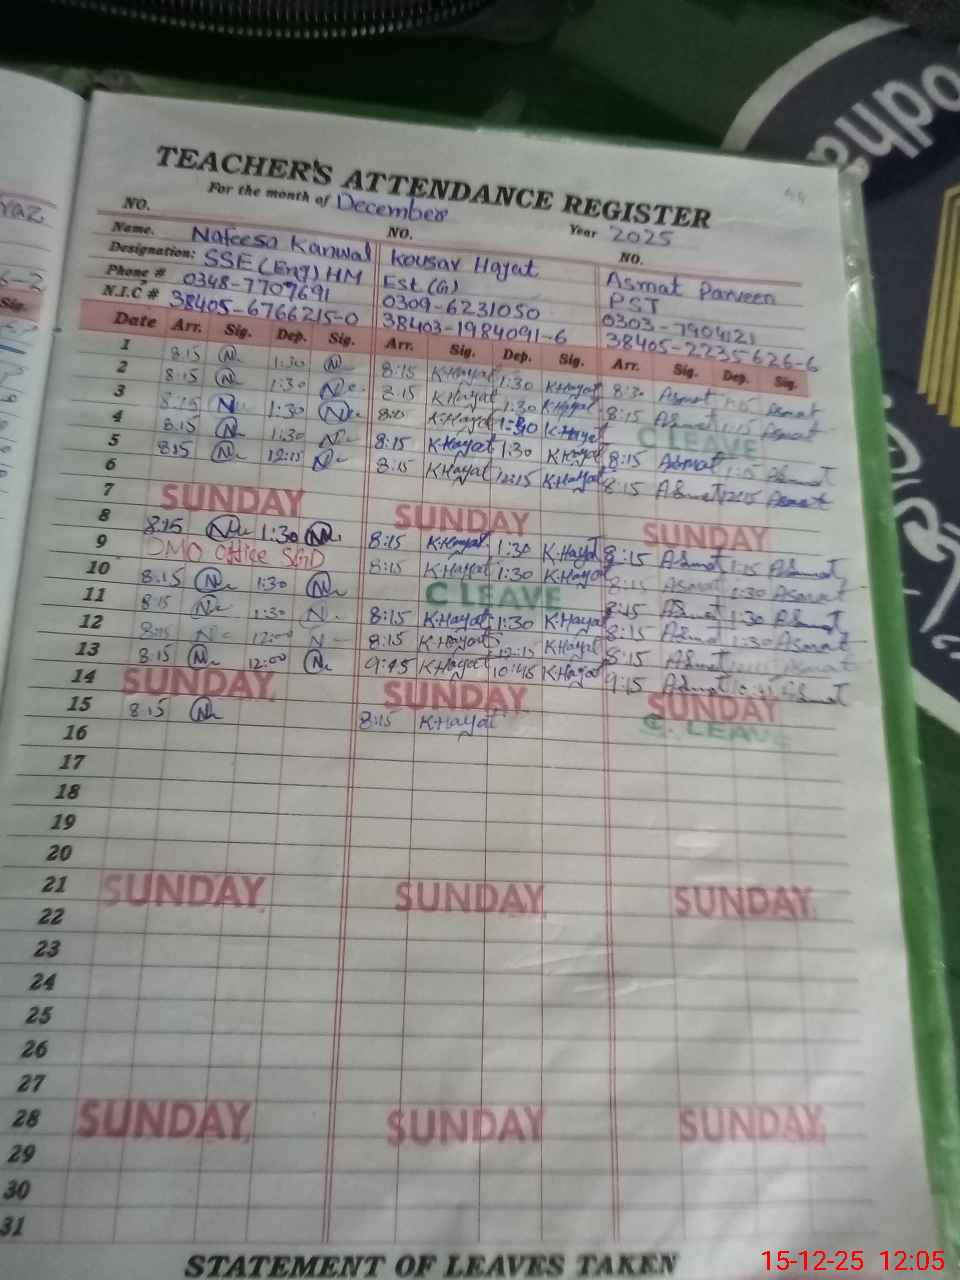 TEACHER'S ATTENDANCE REGISTER
For the month of December Year 2025
NO. NO. NO.
Name. Nafeesa Kanwal Kousar Hayat Asmat Parveen
Designation: SSE (Eng) HM Est (G) PST
Phone # 0348-7709691 0309-6231050 0303-7904121
N.I.C # 38405-6766215-0 38403-1984091-6 38405-2235626-6
Date Arr. Sig. Dep. Sig. Arr. Sig. Dep. Sig. Arr. Sig. Dep. Sig.
1 8:15 N 1:30 N 8:15 K.Hayat 1:30 K.Hayat 8:30 Asmat Asmat
2 8:15 N 1:30 N 8:15 K.Hayat 1:30 K.Hayat 8:15 Asmat 1:15 Asmat
3 8:15 N 1:30 N 8:15 K.Hayat 1:30 K.Hayat C LEAVE
4 8:15 N 1:30 N 8:15 K.Hayat 1:30 K.Hayat 8:15 Asmat 1:15 Asmat
5 8:15 N 12:15 N 8:15 K.Hayat 12:15 K.Hayat 8:15 Asmat 12:15 Asmat
6
7 SUNDAY SUNDAY SUNDAY
8 8:15 N 1:30 N 8:15 K.Hayat 1:30 K.Hayat 8:15 Asmat 1:15 Asmat
9 DMO Office SGD 8:15 K.Hayat 1:30 K.Hayat 8:15 Asmat 1:30 Asmat
10 8:15 N 1:30 N C LEAVE 8:45 Asmat 1:30 Asmat
11 8:15 N 1:30 N 8:15 K.Hayat 1:30 K.Hayat 8:15 Asmat 1:30 Asmat
12 8:15 N 12:00 N 8:15 K.Hayat 12:15 K.Hayat 8:15 Asmat Asmat
13 8:15 N 12:00 N 9:45 K.Hayat 10:45 K.Hayat 9:15 Asmat Asmat
14 SUNDAY SUNDAY SUNDAY
15 8:15 N 8:15 K.Hayat C. LEAVE
16
17
18
19
20
21 SUNDAY SUNDAY SUNDAY
22
23
24
25
26
27
28 SUNDAY SUNDAY SUNDAY
29
30
31
STATEMENT OF LEAVES TAKEN
15-12-25 12:05